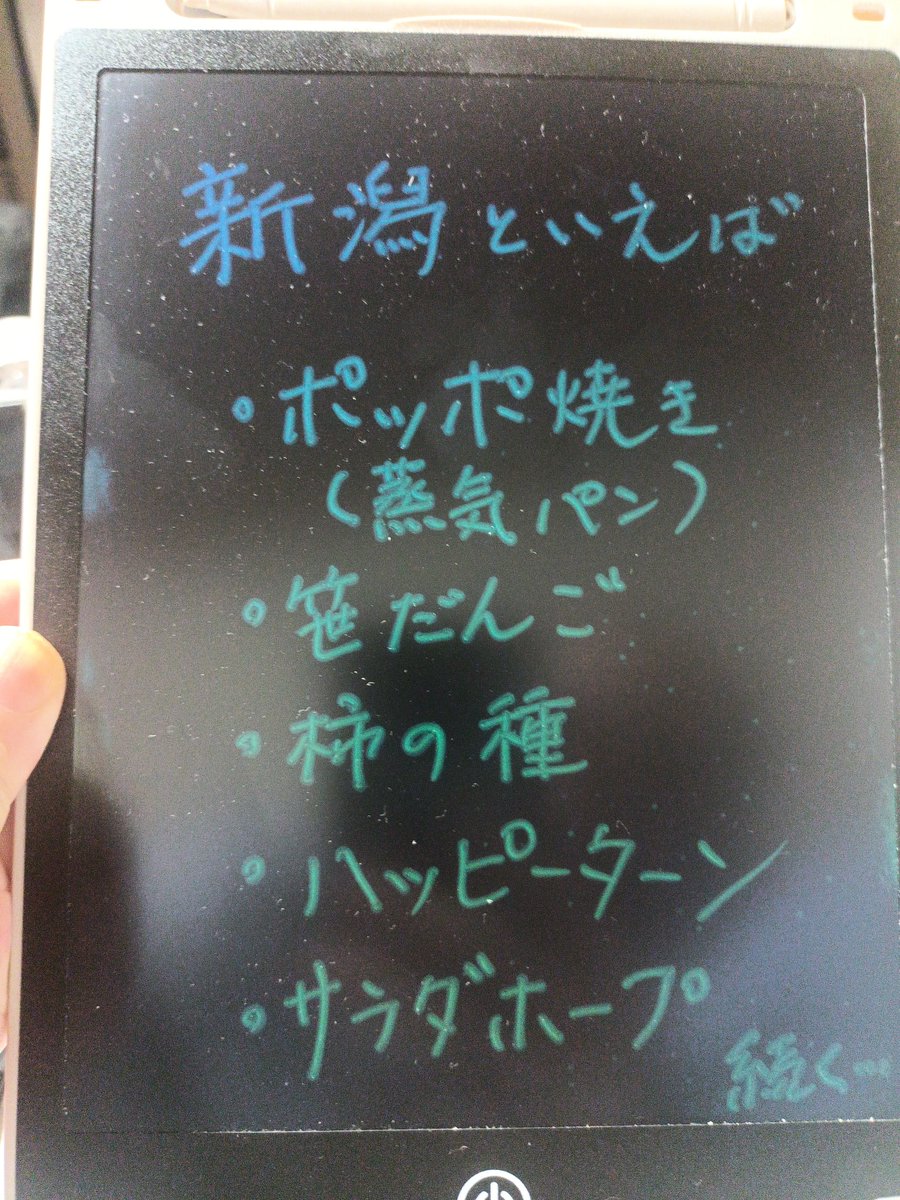 新潟といえば
・ポッポ焼き
(蒸気パン)
・笹だんご
・柿の種
・ハッピーターン
・サラダホープ
続く…